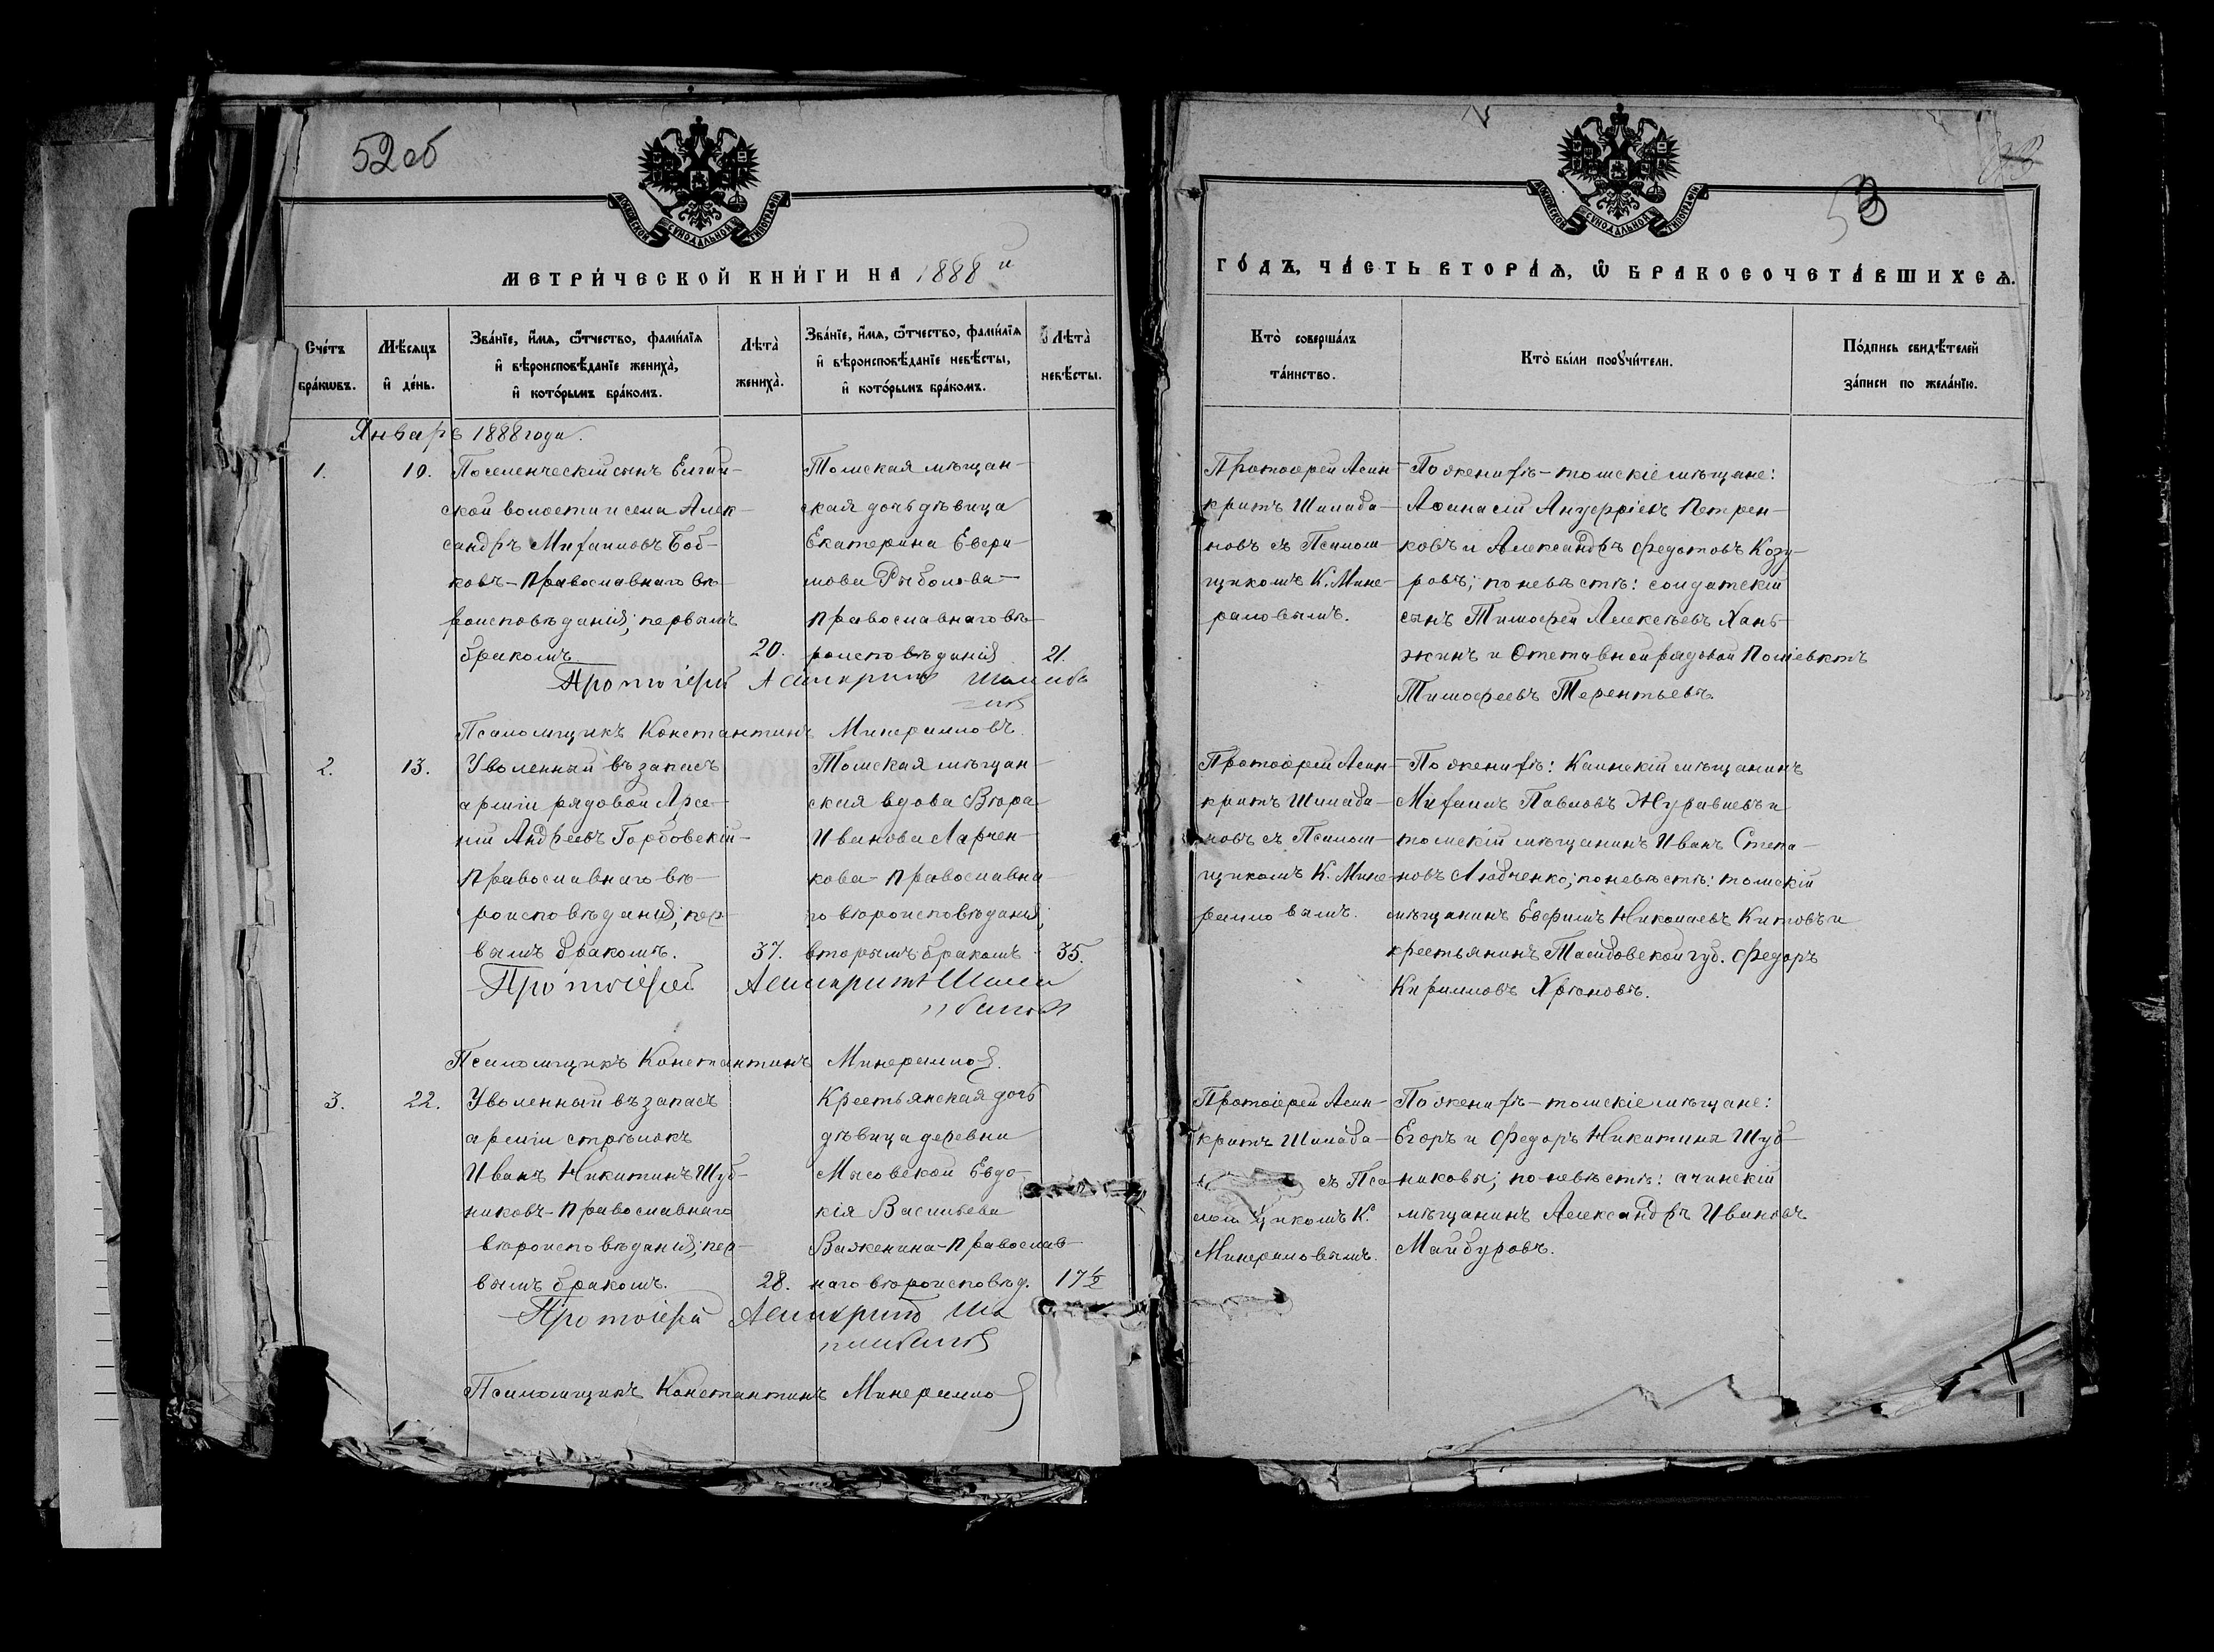 52об
МОСКОВСКОЙ СѴНОДАЛЬНОЙ ТИПОГРАФІИ
МЕТРИ́ЧЕСКОЙ КНИ́ГИ НА 1888 й
Сче́тъ бра́кѡвъ.
Мѣ́сяцъ и҆ де́нь.
Зва́нїе, и҆́мя, ѻ҆́тчество, фами́лїя и҆ вѣроисповѣ́данїе жениха̀, и҆ кото́рымъ бра́комъ.
Лѣта̀ жениха̀.
Зва́нїе, и҆́мя, ѻ҆́тчество, фами́лїя и҆ вѣроисповѣ́данїе невѣ́сты, и҆ кото́рымъ бра́комъ.
Лѣта̀ невѣ́сты.
Январь 1888 года.
1.
10.
Поселенческій сынъ Елгай-
ской волости и села Алек-
сандръ Михаиловъ Боб-
ковъ - Православнаго вѣ-
роисповѣданія; первымъ
бракомъ
20.
Томская мѣщан-
ская дочь дѣвица
Екатерина Евфи-
мова Рыболова -
Православнаго вѣ-
роисповѣданія
21.
Протоіерей Асинкритъ
Псаломщикъ Константинъ Минераловъ.
2.
13.
Уволенный въ запасъ
арміи рядовой Арсе-
ній Андреевъ Горбовскій -
Православнаго вѣ-
роисповѣданія; пер-
вымъ бракомъ.
37.
Томская мѣщан-
ская вдова Вѣра
Иванова Ларчен-
кова - Православна-
го вѣроисповѣданія;
вторымъ бракомъ
35.
Протоіерей Асинкритъ
Псаломщикъ Константинъ Минераловъ.
3.
22.
Уволенный въ запасъ
арміи стрѣлокъ
Иванъ Никитинъ Шуб-
никовъ - Православнаго
вѣроисповѣданія; пер-
вымъ бракомъ.
28.
Крестьянская дочь
дѣвица деревни
Мысовской Евдо-
кія Васильева
Важенина - Православ-
наго вѣроисповѣд.
17½
Протоіерей Асинкритъ
Псаломщикъ Константинъ Минераловъ
53
МОСКОВСКОЙ СѴНОДАЛЬНОЙ ТИПОГРАФІИ
ГО́ДЪ, ЧА́СТЬ ВТОРА́Ѧ, Ѡ҆ БРАКОСОЧЕТА́ВШИХСѦ.
Кто̀ соверша́лъ та́инство.
Кто̀ бы́ли поꙋчи́тели.
По́дпись свидѣ́телей за́писи по жела́нїю.
Протоіерей Асин-
критъ Шалаба-
новъ съ Псалом-
щикомъ К. Мине-
раловымъ.
По женихѣ - томскіе мѣщане:
Афанасій Петрен-
ковъ и Александръ Федотовъ Козу-
ровъ; по невѣстѣ: солдатскій
сынъ Тимофей Алексѣевъ Хань-
жинъ и Отставной рядовой Поліевктъ
Тимофеевъ Терентьевъ.
Протоіерей Асин-
критъ Шалаба-
новъ съ Псалом-
щикомъ К. Мине-
раловымъ.
По женихѣ: Каинскій мѣщанинъ
Михаилъ Павловъ Журавлевъ и
томскій мѣщанинъ Иванъ Степа-
новъ Любченко; по невѣстѣ: томскій
мѣщанинъ Евфимъ Николаевъ Китовъ и
крестьянинъ Тамбовской губ. Федоръ
Кирилловъ
Протоіерей Асин-
критъ Шалаба-
съ Пса-
ломщикомъ К.
Минераловымъ.
По женихѣ - томскіе мѣщане:
Егоръ и Федоръ Никитины Шуб-
никовы; по невѣстѣ: ачинскій
мѣщанинъ Александръ Ивановъ
Майбуровъ.